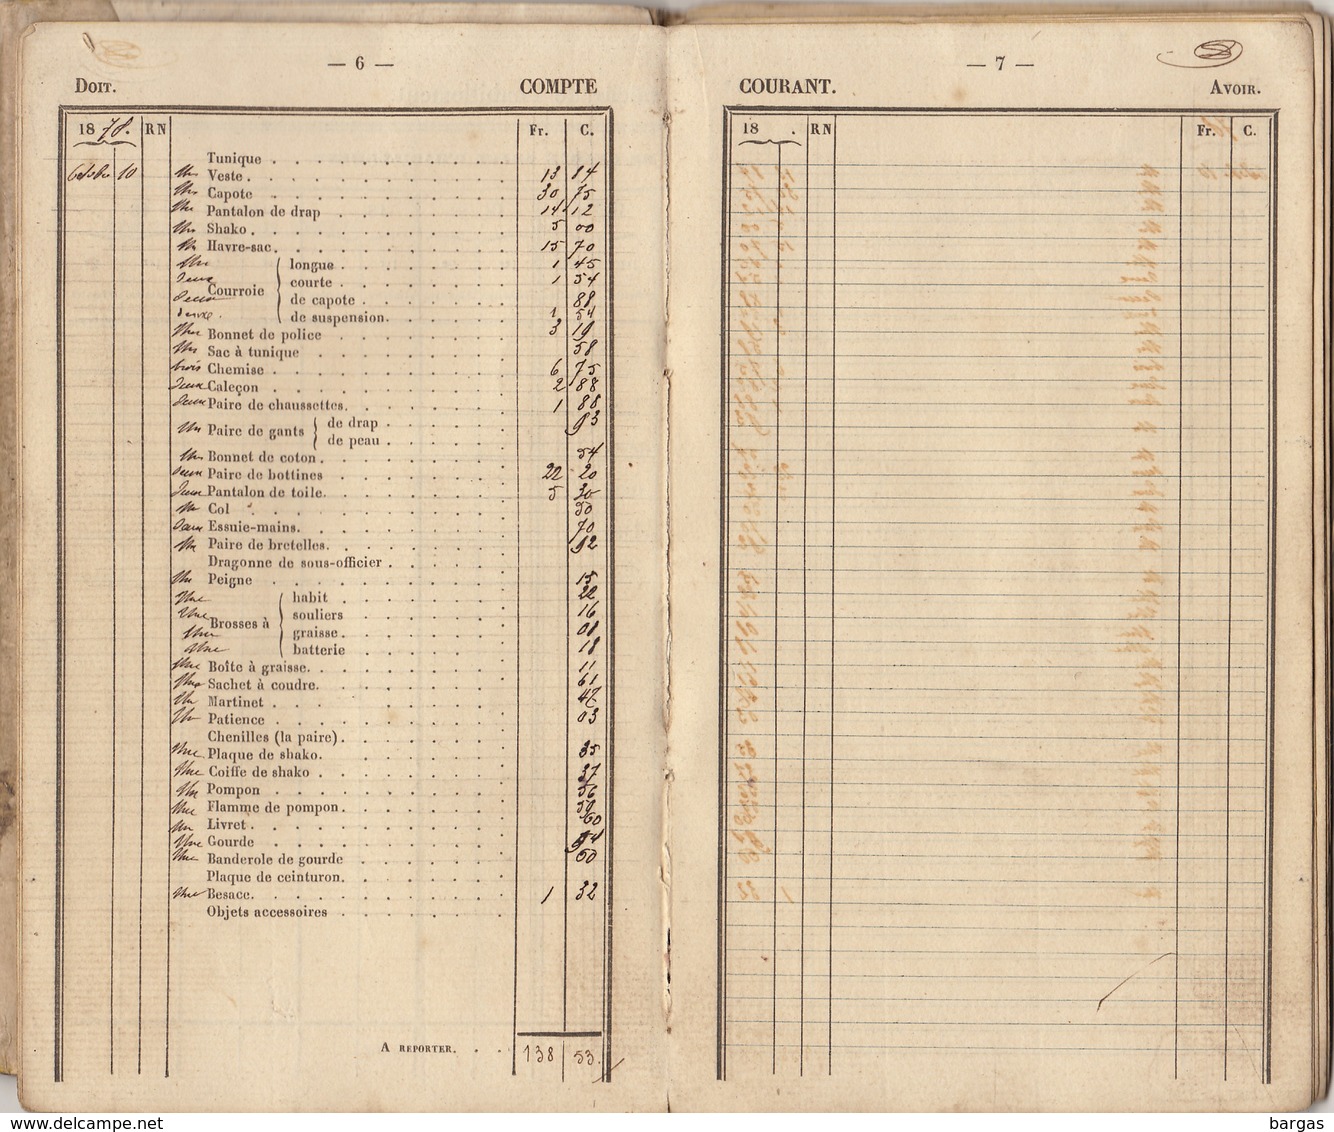 — 6 —
Doit. COMPTE
1878. RN Fr. C.
Tunique
October 10 Une Veste 13 84
Une Capote 30 75
Un Pantalon de drap 14 12
Un Shako 5 00
Un Havre-sac 15 70
Une longue 1 45
deux Courroie courte 1 54
deux de capote 88
deux de suspension 1 54
Un Bonnet de police 3 19
Un Sac à tunique 58
trois Chemise 6 75
deux Caleçon 2 88
deux Paire de chaussettes. 1 88
Un Paire de gants de drap 93
de peau
Un Bonnet de coton 54
deux Paire de bottines 22 20
deux Pantalon de toile. 5 30
Un Col 50
deux Essuie-mains. 70
Un Paire de bretelles. 92
Dragonne de sous-officier
Un Peigne 15
Une habit 22
Une Brosses à souliers 16
Une graisse 08
Une batterie 18
Une Boîte à graisse. 11
Un Sachet à coudre. 61
Un Martinet 47
Un Patience 03
Chenilles (la paire)
Une Plaque de shako. 35
Une Coiffe de shako 37
Un Pompon 56
Une Flamme de pompon 50
Un Livret 60
Une Gourde 94
Une Banderole de gourde 50
Plaque de ceinturon.
Une Besace. 1 32
Objets accessoires
A reporter. 138 53.
— 7 —
COURANT. Avoir.
18 . RN Fr. C.
bargas